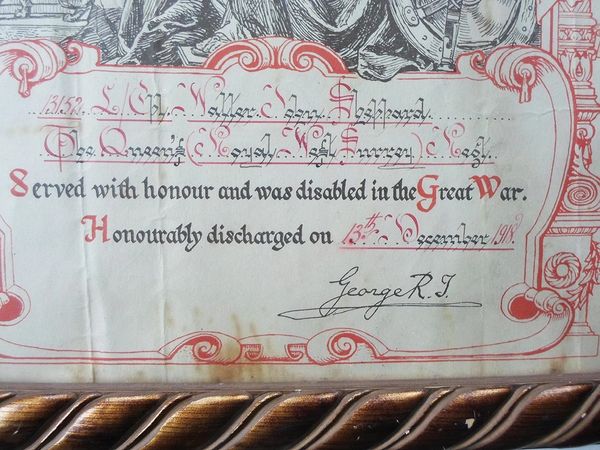 13152. L/Cpl. Walter John Sheppard.
The Queen's (Royal West Surrey) Regt.
Served with honour and was disabled in the Great War.
Honourably discharged on 13th December 1918.
George R.I.